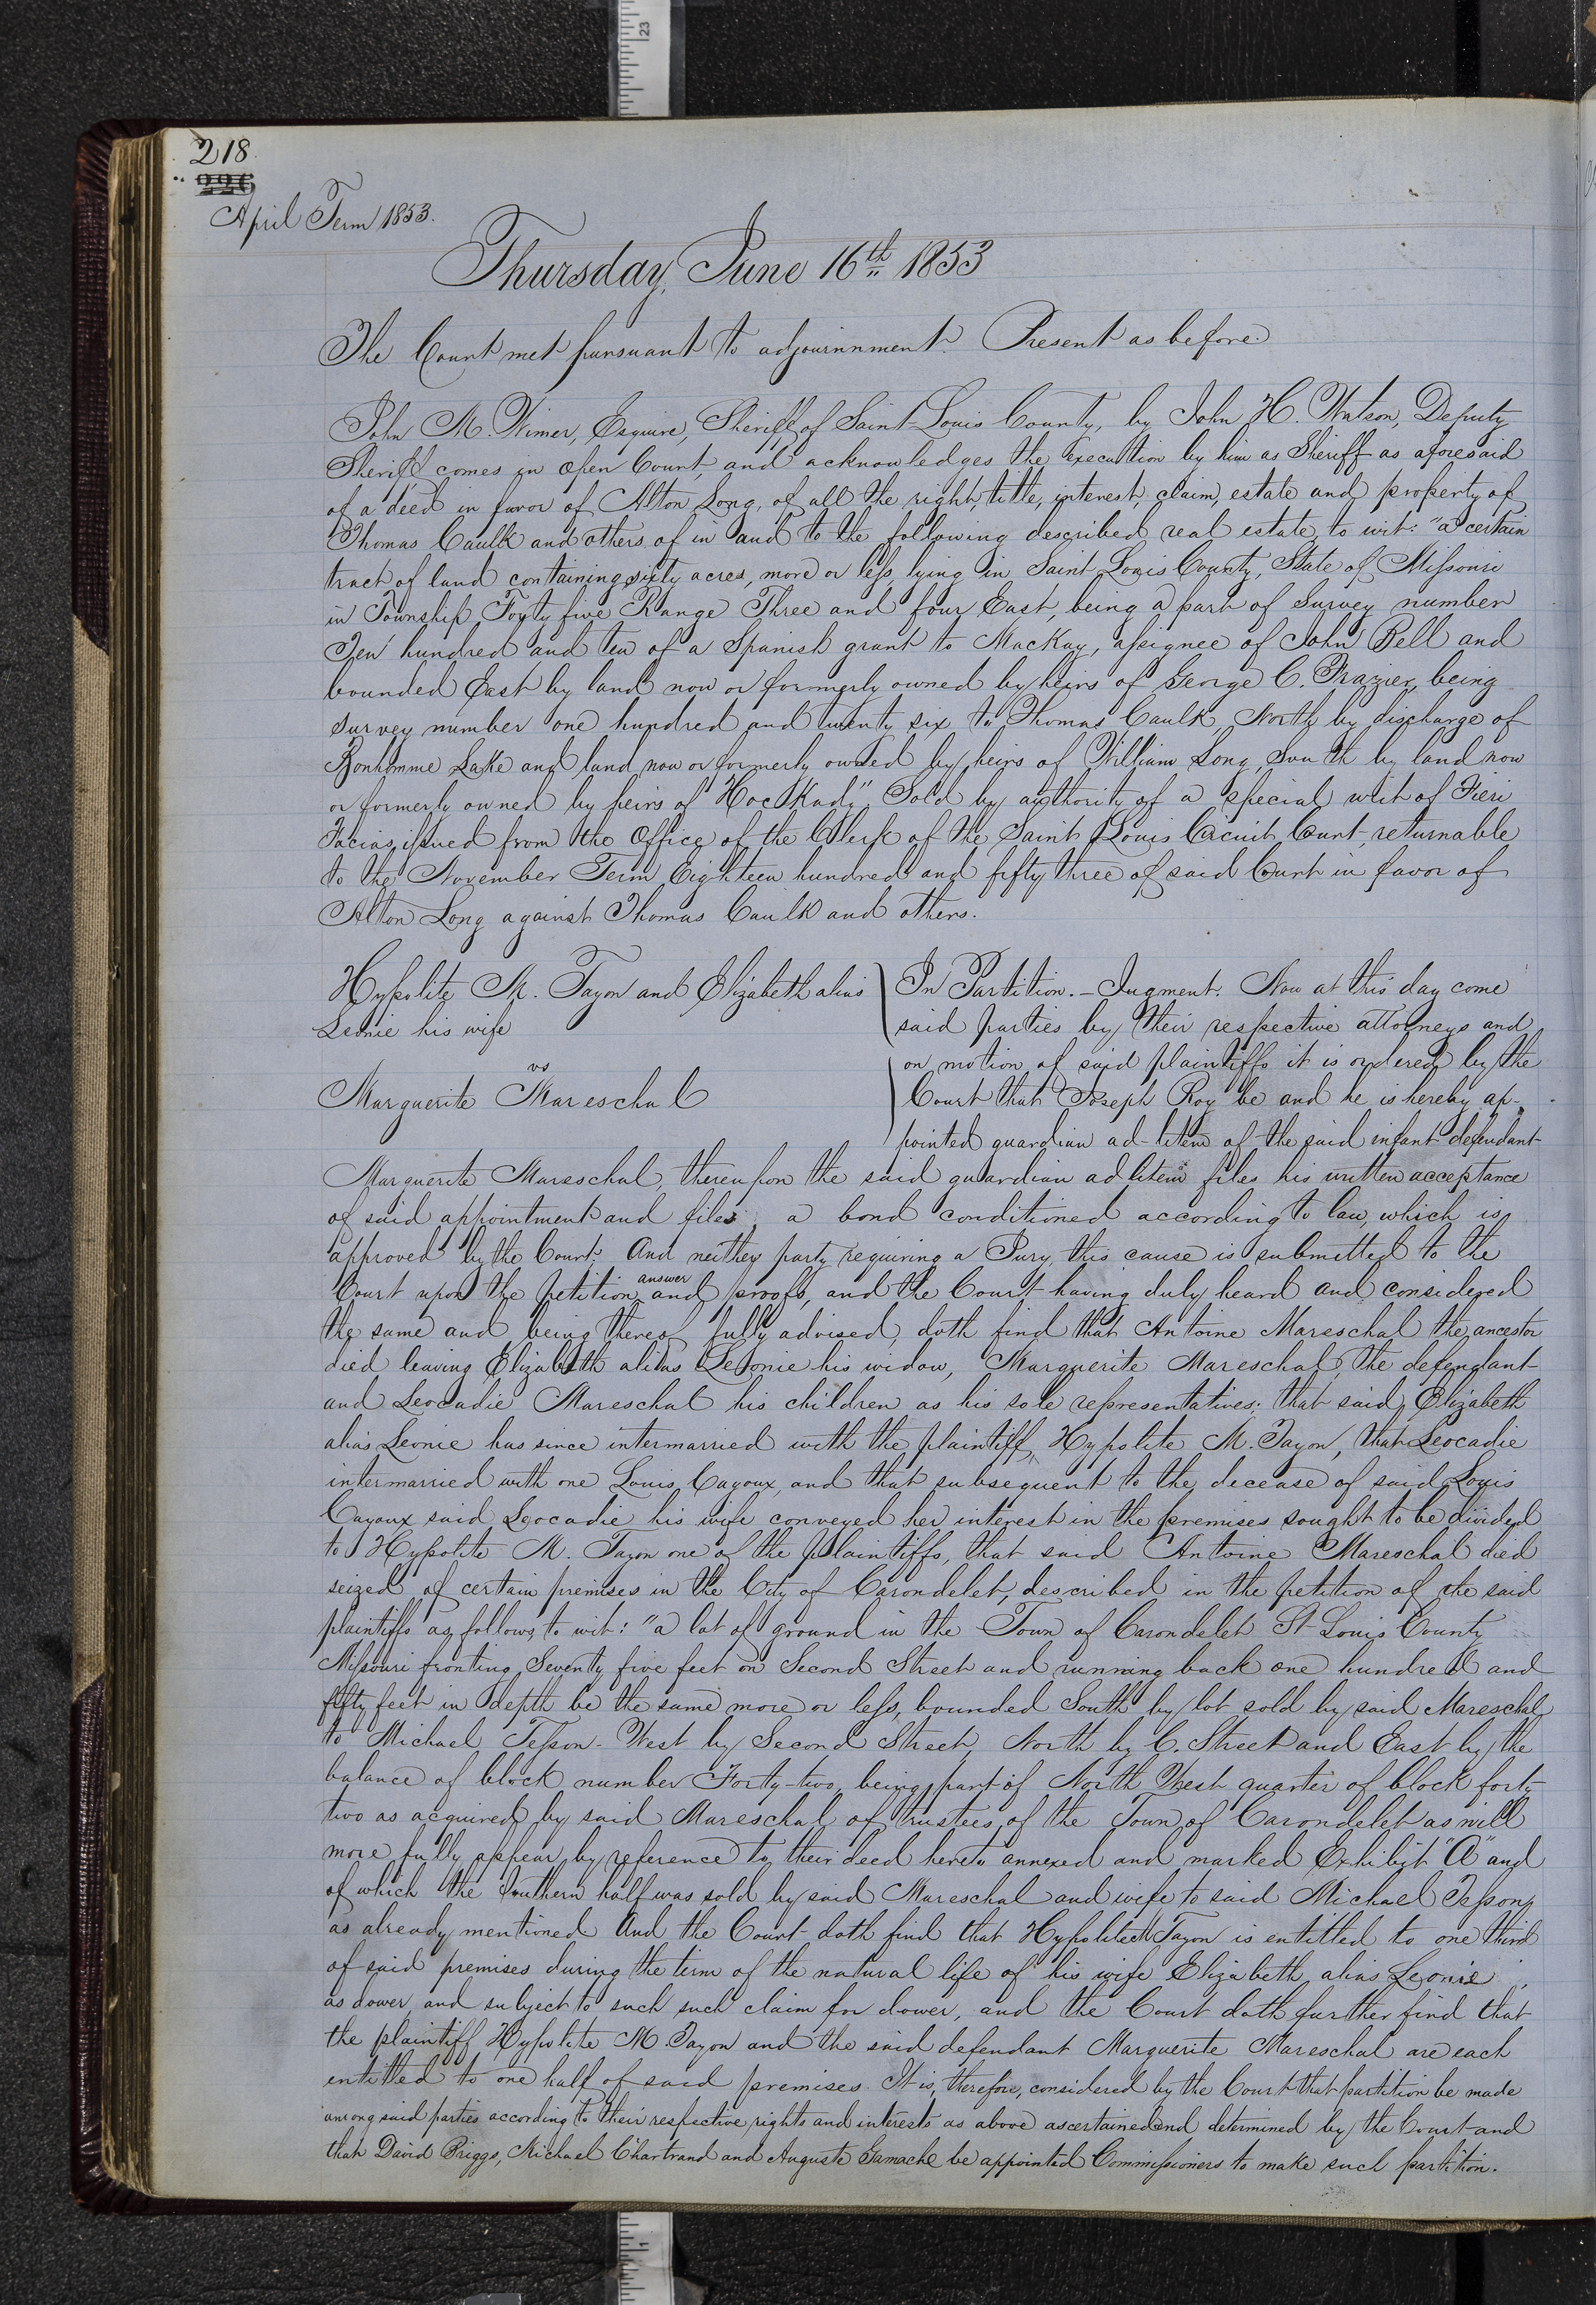 218
226
April Term 1853.
Thursday, June 16th 1853
The Court met pursuant to adjournment. Present as before.
John M. Wimer, Esquire, Sheriff of Saint Louis County, by John H. Watson, Deputy
Sheriff, comes in open Court, and acknowledges the execution by him as Sheriff as aforesaid
of a deed in favor of Alton Long, of all the right, title, interest, claim, estate and property of
Thomas Caulk and others of in and to the following described real estate, to wit: "a certain
tract of land containing sixty acres, more or less, lying in Saint Louis County, State of Missouri
in Township Forty five Range Three and four East, being a part of Survey number
Ten hundred and ten of a Spanish grant to MacKay, assignee of John Bell and
bounded East by land now or formerly owned by heirs of George C. Frazier, being
survey number one hundred and twenty six to Thomas Caulk, North by discharge of
Bonhomme Lake and land now or formerly owned by heirs of William Long, South by land now
or formerly owned by heirs of Hockady" Sold by authority of a special writ of Fieri
Facias, issued from the Office of the Clerk of the Saint Louis Circuit Court, returnable
to the November Term Eighteen hundred and fifty three of said Court in favor of
Alton Long against Thomas Caulk and others.
Hypolite M. Tayon and Elizabeth alias
Leonie his wife
vs
Marguerite Mareschal
In Partition. - Jugment. Now at this day come
said parties by their respective attorneys and
on motion of said plaintiffs it is ordered by the
Court that Joseph Roy be and he is hereby ap-
pointed guardian ad-litem of the said infant defendant
Marguerite Mareschal, thereupon the said guardian ad litem files his written acceptance
of said appointment and files, a bond conditioned according to law, which is
approved by the Court; And neither party requiring a Jury, this cause is submitted to the
Court upon the petition answer and proofs, and the Court having duly heard and considered
the same and being thereof fully advised, doth find that Antoine Mareschal the ancestor
died leaving Elizabeth alias Leonie his widow, Marguerite Mareschal, the defendant
and Leocadie Mareschal his children as his sole representatives; that said Elizabeth
alias Leonie has since intermarried with the plaintiff, Hypolite M. Tayon, that Leocadie
intermarried with one Louis Cayoux, and that subsequent to the decease of said Louis
Cayoux said Leocadie his wife conveyed her interest in the premises sought to be divided
to Hypolite M. Tayon one of the plaintiffs, that said Antoine Mareschal died
seized of certain premises in the City of Carondelet, described in the petition of the said
plaintiffs as follows, to wit: "a lot of ground in the Town of Carondelet St Louis County
Missouri fronting Seventy five feet on Second Street and running back one hundred and
fifty feet in depth be the same more or less, bounded South by lot sold by said Mareschal
to Michael Tesson - West by Second Street, North by C. Street and East by the
balance of block number Forty-two, being part of North West quarter of block forty
two as acquired by said Mareschal of trustees of the Town of Carondelet as will
more fully appear by reference to their deed hereto annexed and marked Exhibit "A" and
of which the Southern half was sold by said Mareschal and wife to said Michael Tesson,
as already mentioned And the Court doth find that Hypolite M Tayon is entitled to one third
of said premises during the term of the natural life of his wife Elizabeth alias Leonie,
as dower, and subject to such such claim for dower, and the Court doth further find that
the plaintiff Hypolite M. Tayon and the said defendant Marguerite Mareschal are each
entitled to one half of said premises. It is, therefore, considered by the Court that partition be made
among said parties according to their respective rights and interests as above ascertained and determined by the Court and
that David Briggs, Michael Chartrand and Auguste Gamache be appointed Commissioners to make such partition.
23
1